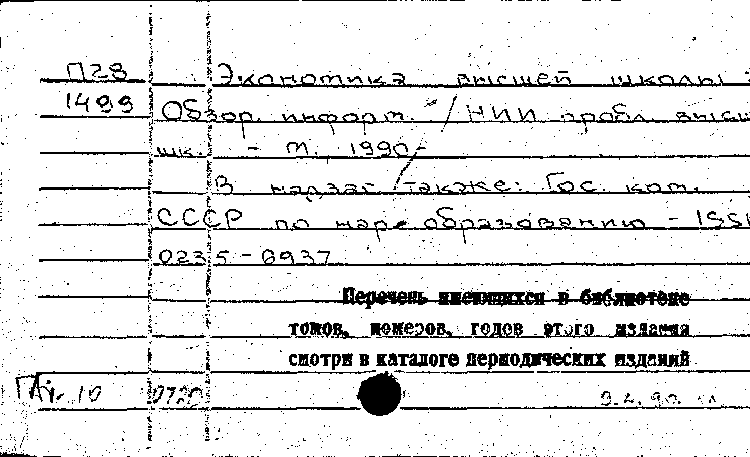 П28 Экономика высшей школы :
1499 Обзор. информ. / НИИ пробл. высш.
шк. - М., 1990-
В надзаг. также: Гос. ком.
СССР по нар. образованию - ISSN
0235-6937
Перечень имеющихся в библиотеке
томов, номеров, годов этого издания
смотри в каталоге периодических изданий
10 0720 9.4.90